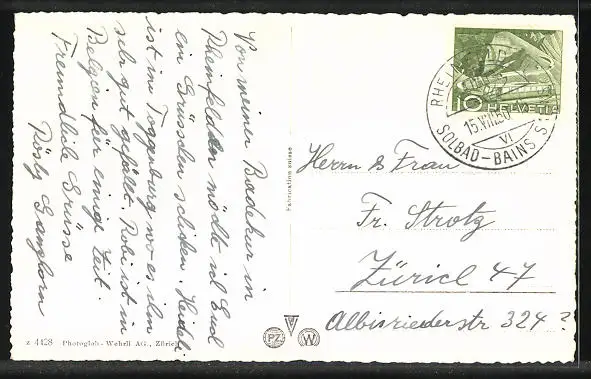 Von meiner Badekur in
Rheinfelden möchte ich Euch
ein Grüsschen schicken. Heidi
ist im Toggenburg wo es ihm
sehr gut gefällt. Robi ist in
Belgien für einige Zeit.
Freundliche Grüsse
Rösly
z 4428 Photoglob-Wehrli AG., Zürich
Fabrication suisse
PZ W
10 HELVETIA
RHEINFELDEN
15.VIII.50
VI
SOLBAD-BAINS S.
Herrn & Frau
Fr. Strotz
Zürich 47
Albisriederstr 324 ?